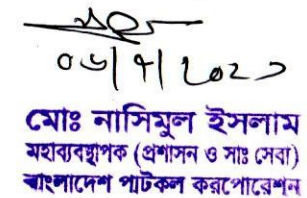 ০৬|৭|২০২১
মোঃ নাসিমুল ইসলাম
মহাব্যবস্থাপক (প্রশাসন ও সাঃ সেবা)
বাংলাদেশ পাটকল করপোরেশন